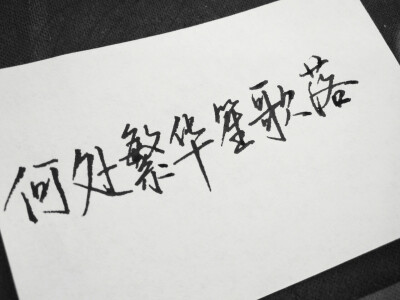 何处繁华笙歌落